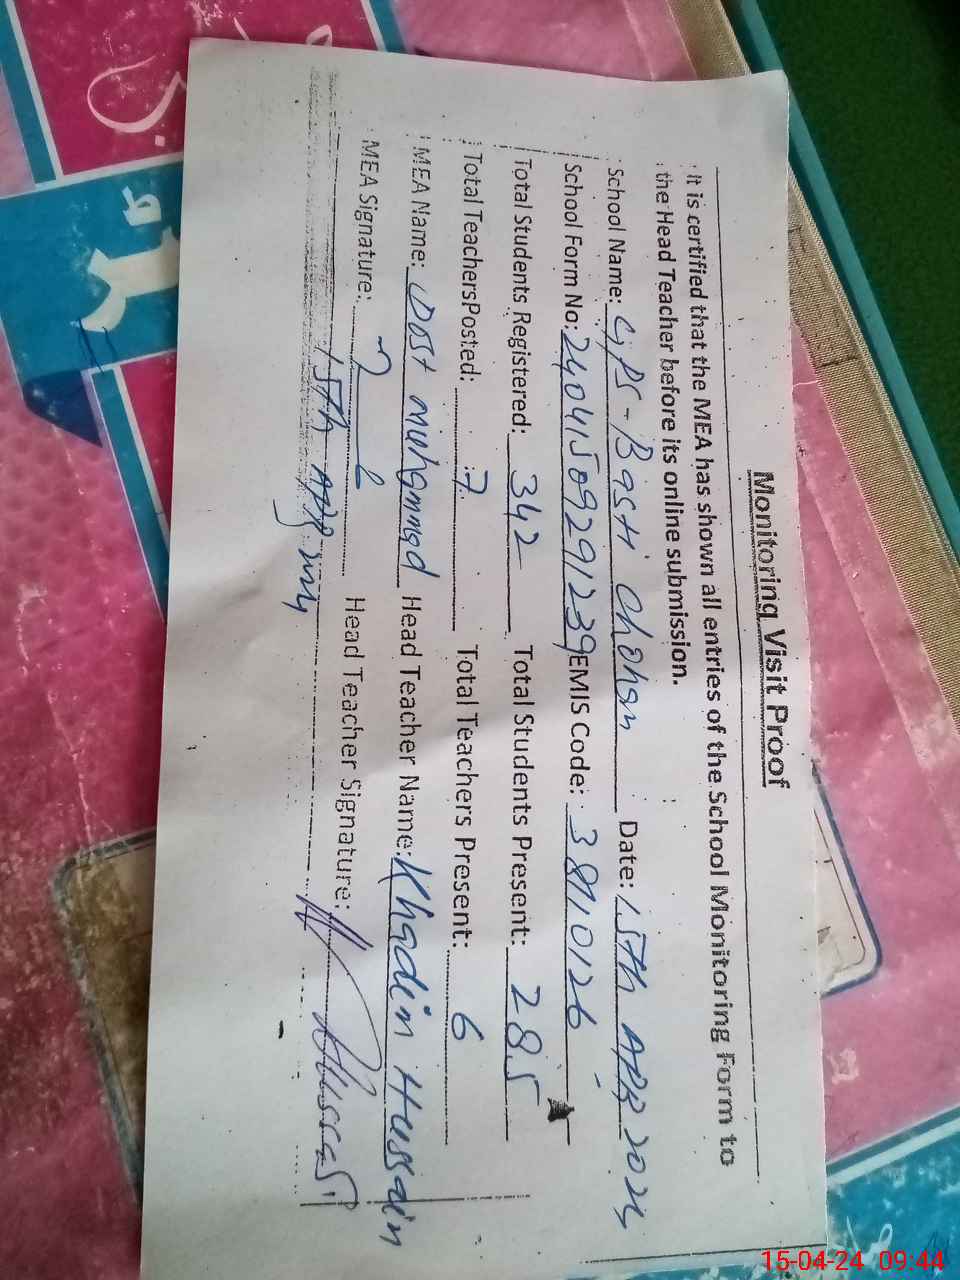 Monitoring Visit Proof
It is certified that the MEA has shown all entries of the School Monitoring Form to
the Head Teacher before its online submission.
School Name: GPS-Basti Chohan Date: 15th APR 2024
School Form No: 24041509291239 EMIS Code: 3810126
Total Students Registered: 342 Total Students Present: 285
Total TeachersPosted: 7 Total Teachers Present: 6
MEA Name: Dost Muhammad Head Teacher Name: Khadim Hussain
MEA Signature: Head Teacher Signature:
15th APR 2024
15-04-24 09:44